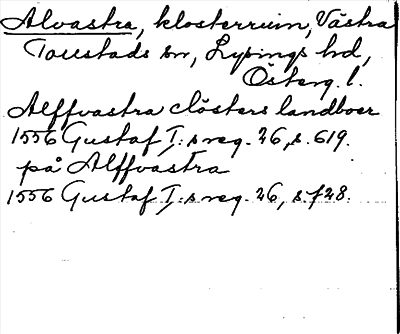 Alvastra, klosterruin, Västra
Tollstads sn, Lysings hd,
Österg. l.
Alffvastra clösters landboer
1556 Gustaf I:s reg. 26, s. 619.
på Alffvastra
1556 Gustaf I:s reg. 26, s. 728.